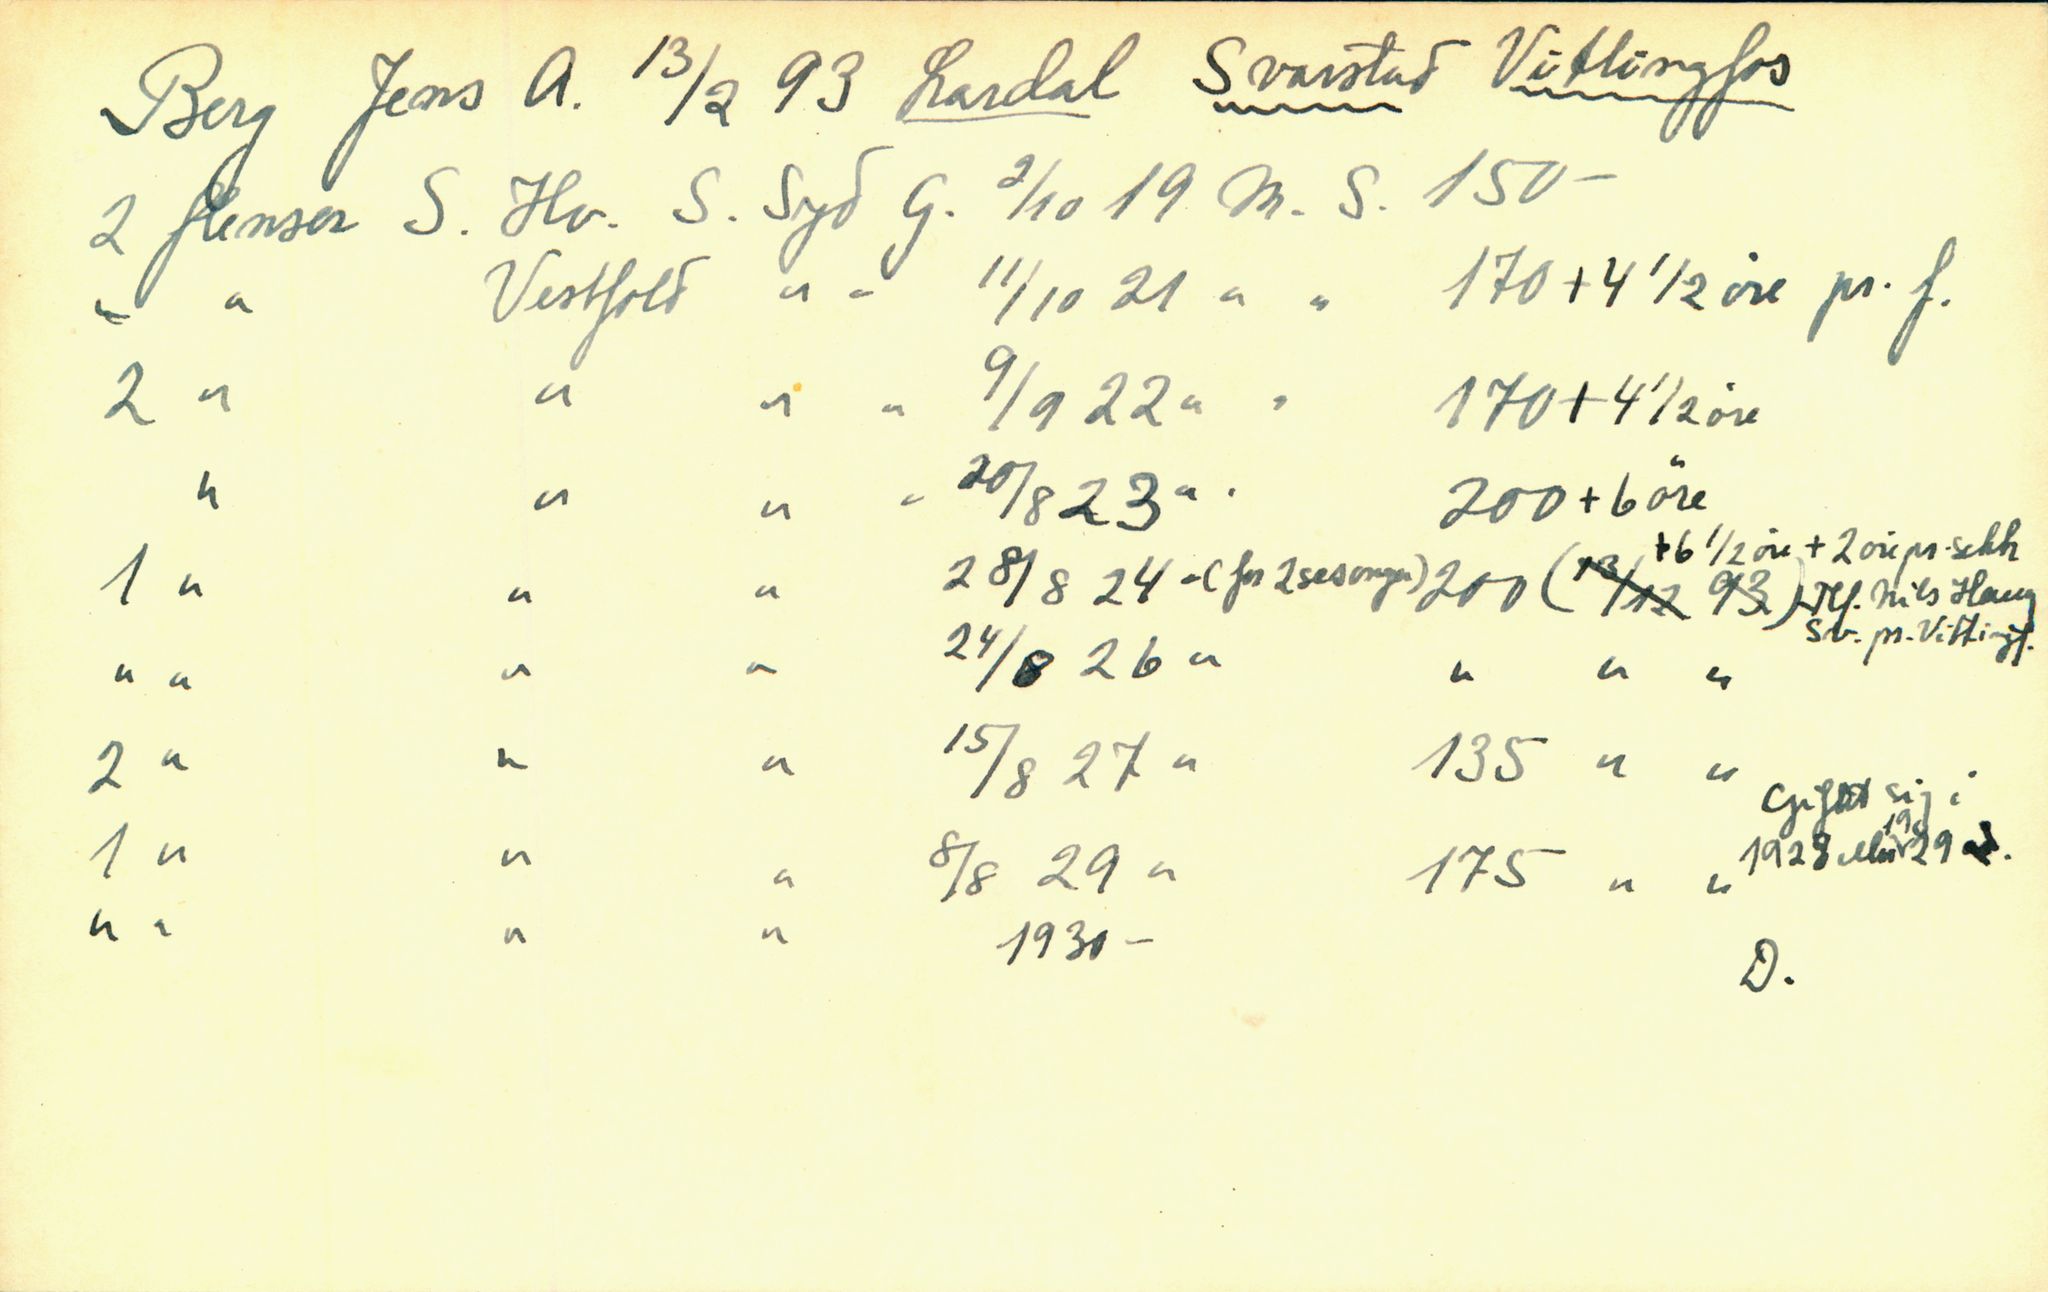 Berg Jens A. 13/2 93 Lardal Svarstad Vittingfos
2 flenser S. Hv. S. Syd G. 2/10 19 M. S. 150-
" " Vestfold " " 11/10 21 " " 170 + 4 1/2 öre pr. f.
2 " " " " 9/9 22 " " 170 + 4 1/2 öre
" " " " 20/8 23 " " 200 + 6 öre
+ 6 1/2 öre + 2 öre pr. sekk
1 " " " 28/8 24 " (for 2 sesonger) 200 (13/12 93) Tlf. Nils Haug
Sv. pr. Vittingf.
" " " " 24/8 26 " " " "
2 " " " 15/8 27 " 135 " "
Giftet sig i
1 " " " 8/8 29 " 175 " " 1928 29
" " " " 1930 -
D.